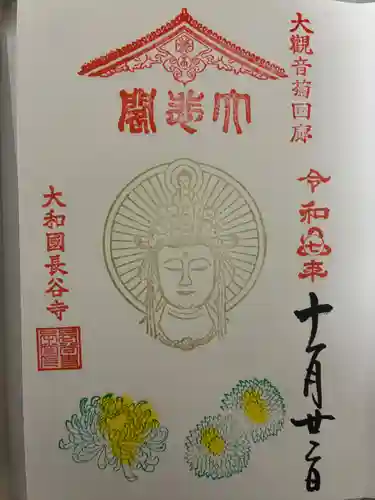 大觀音菊回廊
令和七年
十一月廿二日
大悲閣
大和國長谷寺